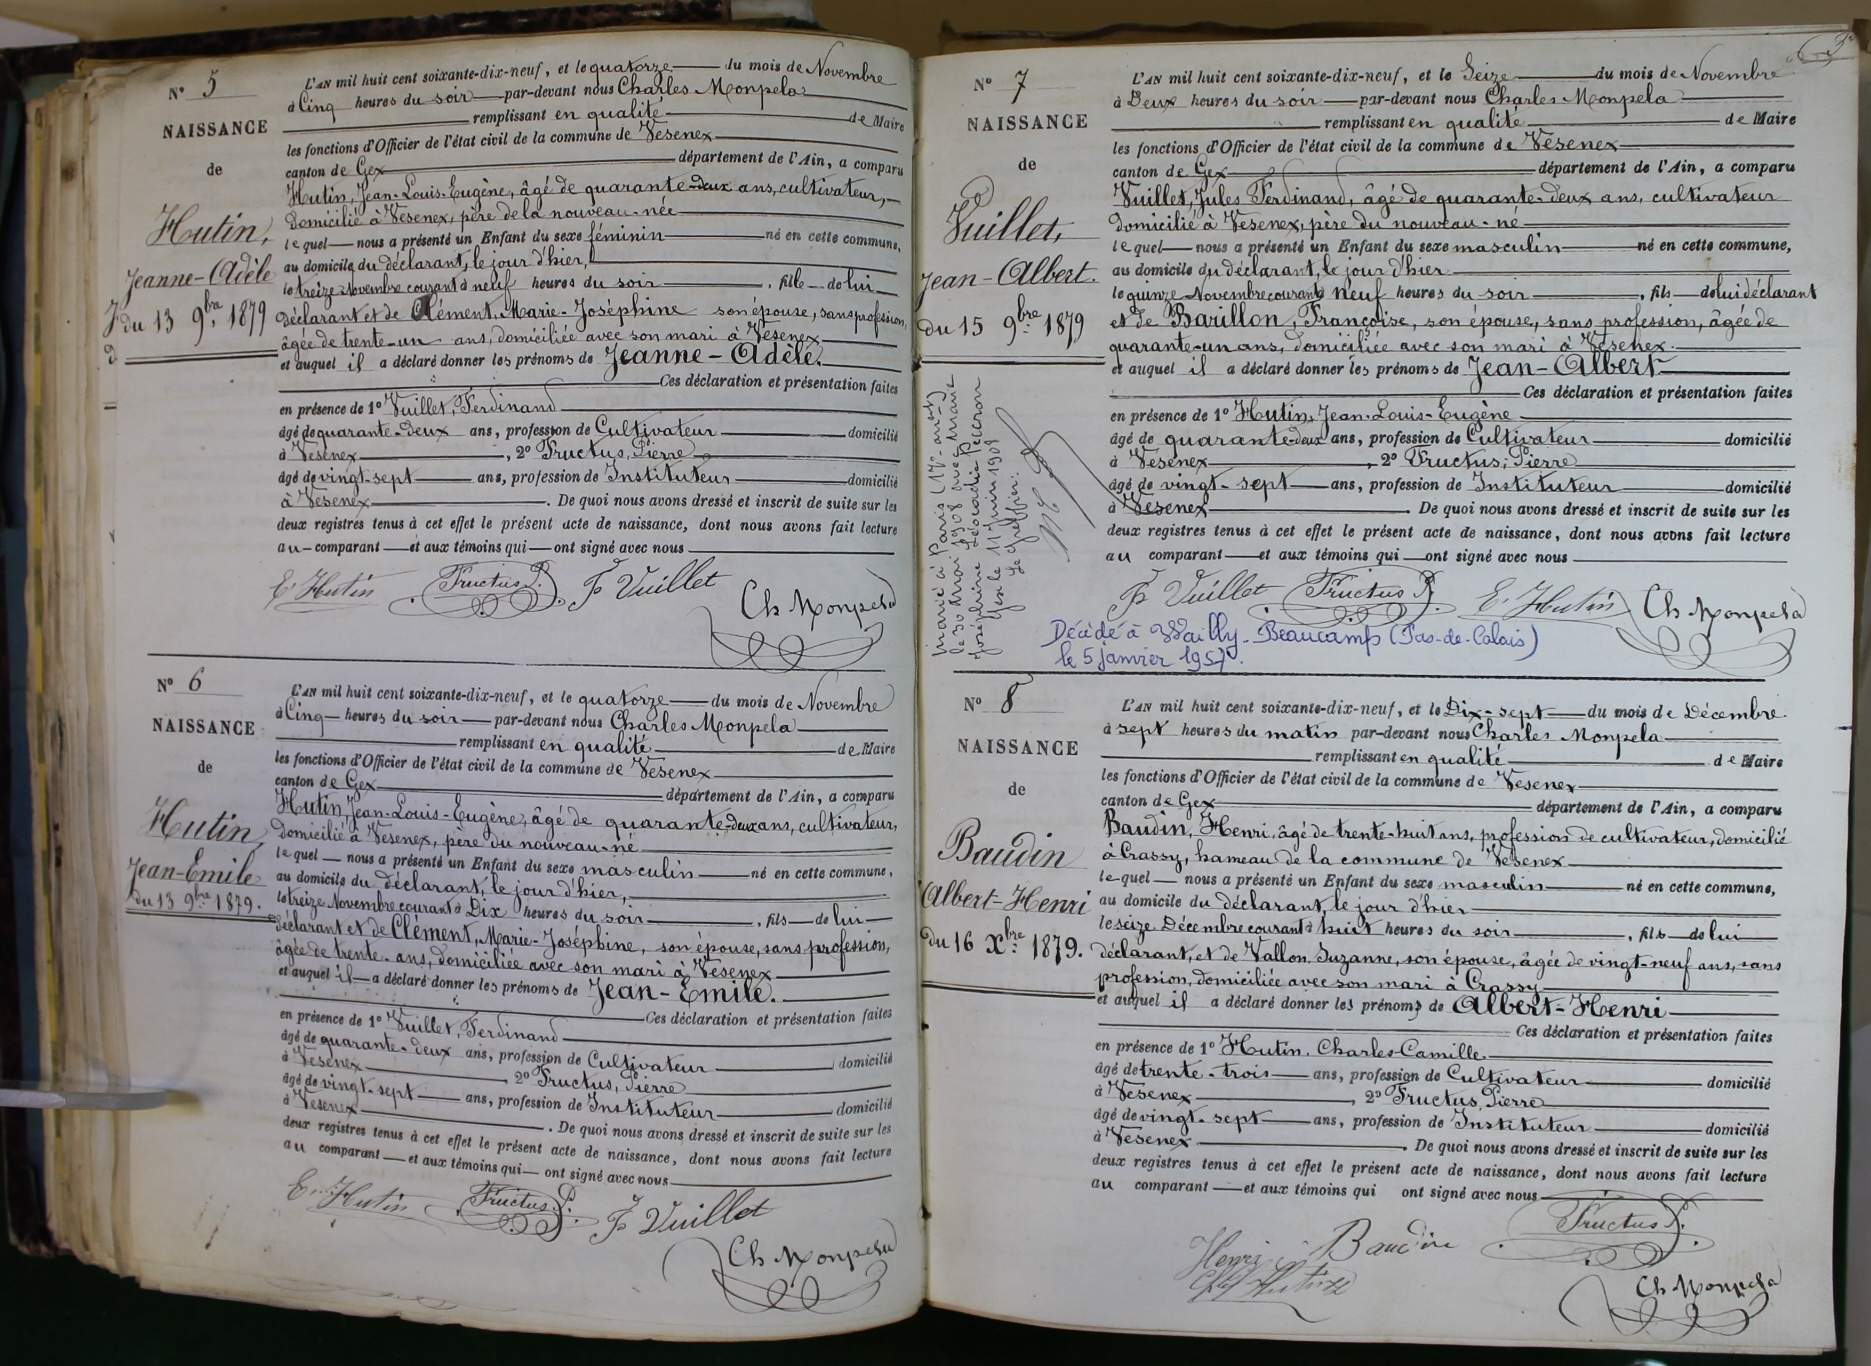 N° 5
NAISSANCE
de
Hutin,
Jeanne-Adèle
du 13 9bre 1879
L'AN mil huit cent soixante-dix-neuf, et le quatorze du mois de Novembre
à Cinq heures du soir par-devant nous Charles Monpela
remplissant en qualité de Maire
les fonctions d'Officier de l'état civil de la commune de Vesenex
canton de Gex département de l'Ain, a comparu
Hutin, Jean-Louis-Eugène, âgé de quarante-deux ans, cultivateur,
domicilié à Vesenex, père de la nouveau-née
lequel nous a présenté un Enfant du sexe féminin né en cette commune,
au domicile du déclarant, le jour d'hier,
le treize Novembre courant à neuf heures du soir, fille de lui
déclarant et de Clément, Marie-Joséphine son épouse, sans profession,
âgée de trente-un ans, domiciliée avec son mari à Vesenex
et auquel il a déclaré donner les prénoms de Jeanne-Adèle.
Ces déclaration et présentation faites
en présence de 1° Vuillet, Ferdinand
âgé de quarante-deux ans, profession de Cultivateur domicilié
à Vesenex, 2° Fructus, Pierre
âgé de vingt-sept ans, profession de Instituteur domicilié
à Vesenex. De quoi nous avons dressé et inscrit de suite sur les
deux registres tenus à cet effet le présent acte de naissance, dont nous avons fait lecture
au comparant et aux témoins qui ont signé avec nous
E. Hutin Fructus P. Fd Vuillet Ch Monpela
N° 6
NAISSANCE
de
Hutin,
Jean-Emile
du 13 9bre 1879.
L'AN mil huit cent soixante-dix-neuf, et le quatorze du mois de Novembre
à Cinq heures du soir par-devant nous Charles Monpela
remplissant en qualité de Maire
les fonctions d'Officier de l'état civil de la commune de Vesenex
canton de Gex département de l'Ain, a comparu
Hutin, Jean-Louis-Eugène, âgé de quarante-deux ans, cultivateur,
domicilié à Vesenex, père du nouveau-né
lequel nous a présenté un Enfant du sexe masculin né en cette commune,
au domicile du déclarant, le jour d'hier,
le treize Novembre courant à Dix heures du soir, fils de lui
déclarant et de Clément, Marie-Joséphine, son épouse, sans profession,
âgée de trente-ans, domiciliée avec son mari à Vesenex
et auquel il a déclaré donner les prénoms de Jean-Emile.
Ces déclaration et présentation faites
en présence de 1° Vuillet, Ferdinand
âgé de quarante-deux ans, profession de Cultivateur domicilié
à Vesenex 2° Fructus, Pierre
âgé de vingt-sept ans, profession de Instituteur domicilié
à Vesenex. De quoi nous avons dressé et inscrit de suite sur les
deux registres tenus à cet effet le présent acte de naissance, dont nous avons fait lecture
au comparant et aux témoins qui ont signé avec nous
E. Hutin Fructus P. Fd Vuillet
Ch Monpela
N° 7
NAISSANCE
de
Vuillet,
Jean-Albert.
du 15 9bre 1879
L'AN mil huit cent soixante-dix-neuf, et le Seize du mois de Novembre
à Deux heures du soir par-devant nous Charles Monpela
remplissant en qualité de Maire
les fonctions d'Officier de l'état civil de la commune de Vesenex
canton de Gex département de l'Ain, a comparu
Vuillet, Jules Ferdinand, âgé de quarante-deux ans, cultivateur
domicilié à Vesenex, père du nouveau-né
lequel nous a présenté un Enfant du sexe masculin né en cette commune,
au domicile du déclarant, le jour d'hier
le quinze Novembre courant à Neuf heures du soir, fils de lui déclarant
et de Barillon, Françoise, son épouse, sans profession, âgée de
quarante-un ans, domiciliée avec son mari à Vesenex.
et auquel il a déclaré donner les prénoms de Jean-Albert
Ces déclaration et présentation faites
en présence de 1° Hutin, Jean-Louis-Eugène
âgé de quarante-deux ans, profession de Cultivateur domicilié
à Vesenex, 2° Fructus, Pierre
âgé de vingt-sept ans, profession de Instituteur domicilié
à Vesenex. De quoi nous avons dressé et inscrit de suite sur les
deux registres tenus à cet effet le présent acte de naissance, dont nous avons fait lecture
au comparant et aux témoins qui ont signé avec nous
Fd Vuillet Fructus P. E. Hutin Ch Monpela
Marié à Paris
le 30 Mai 1908 avec Marie
Joséphine Léocadie
Gex le 11 juin 1908
le Greffier.
Décédé à Wailly-Beaucamp (Pas-de-Calais)
le 5 janvier 1957.
N° 8
NAISSANCE
de
Baudin
Albert-Henri
du 16 Xbre 1879.
L'AN mil huit cent soixante-dix-neuf, et le Dix-sept du mois de Décembre
à sept heures du matin par-devant nous Charles Monpela
remplissant en qualité de Maire
les fonctions d'Officier de l'état civil de la commune de Vesenex
canton de Gex département de l'Ain, a comparu
Baudin, Henri, âgé de trente-huit ans, profession de cultivateur, domicilié
à Crassy, hameau de la commune de Vesenex
lequel nous a présenté un Enfant du sexe masculin né en cette commune,
au domicile du déclarant, le jour d'hier
le seize Décembre courant à huit heures du soir, fils de lui
déclarant, et de Vallon, Suzanne, son épouse, âgée de vingt-neuf ans, sans
profession, domiciliée avec son mari à Crassy
et auquel il a déclaré donner les prénoms de Albert-Henri
Ces déclaration et présentation faites
en présence de 1° Hutin, Charles-Camille.
âgé de trente-trois ans, profession de Cultivateur domicilié
à Vesenex, 2° Fructus, Pierre
âgé de vingt-sept ans, profession de Instituteur domicilié
à Vesenex. De quoi nous avons dressé et inscrit de suite sur les
deux registres tenus à cet effet le présent acte de naissance, dont nous avons fait lecture
au comparant et aux témoins qui ont signé avec nous
Henri Baudin Fructus P.
Hutin Ch Monpela